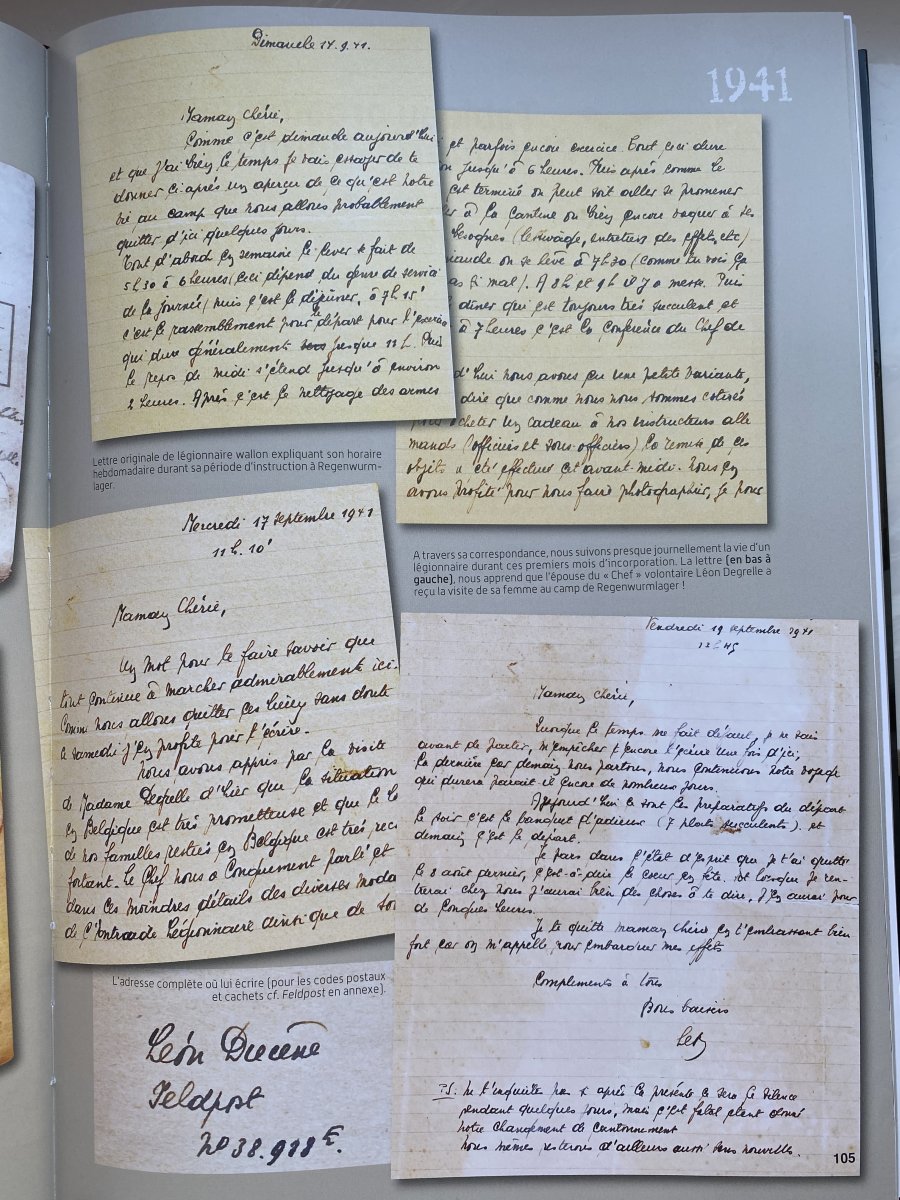 1941
Dimanche 14.9.41.
Maman Chérie,
Comme c'est dimanche aujourd'hui
et que j'ai bien le temps je vais essayer de te
donner ci après un aperçu de ce qu'est notre
vie au camp que nous allons probablement
quitter d'ici quelques jours.
Tout d'abord en semaine le lever se fait de
5h30 à 6 heures (ceci dépend du genre de service
de la journée) puis c'est le déjeuner, à 7h15'
c'est le rassemblement pour le départ pour l'exercice
qui dure généralement jusque 11h. Puis
le repos de midi s'étend jusqu'à environ
2 heures. Après c'est le nettoyage des armes
et parfois encore exercice. Tout ceci dure
jusqu'à 6 heures. Puis après comme le
est terminé on peut soit aller se promener
à la cantine ou bien encore vaquer à ses
besognes (lessivage, entretien des effets, etc)
on se lève à 7h30 (comme tu vois ça
pas si mal). A 8h et 9h il y a messe. Puis
dîner qui est toujours très succulent et
à 7 heures c'est la conférence du Chef de
d'hui nous avons eu une petite variante,
dire que comme nous nous sommes cotisés
pour acheter un cadeau à nos instructeurs alle
mands (officiers et sous-officiers) la remise de ces
objets a été effectuée cet avant-midi. Nous en
avons profité pour nous faire photographier, je pour
Lettre originale de légionnaire wallon expliquant son horaire
hebdomadaire durant sa période d'instruction à Regenwurm-
lager.
A travers sa correspondance, nous suivons presque journellement la vie d'un
légionnaire durant ces premiers mois d'incorporation. La lettre (en bas à
gauche), nous apprend que l'épouse du « Chef » volontaire Léon Degrelle a
reçu la visite de sa femme au camp de Regenwurmlager !
Mercredi 17 septembre 1941
11h.10'
Maman Chérie,
Un mot pour te faire savoir que
tout continue à marcher admirablement ici.
Comme nous allons quitter ces lieux sans doute
ce samedi j'en profite pour t'écrire.
Nous avons appris par la visite
de Madame Degrelle d'hier que la situation
en Belgique est très prometteuse et que le
de nos familles restées en Belgique est très réc
fortant. Le Chef nous a longuement parlé et
dans ces moindres détails des diverses moda
de l'entraide Légionnaire ainsi que de son
L'adresse complète où lui écrire (pour les codes postaux
et cachets cf. Feldpost en annexe).
Léon Ducène
Feldpost
No 38.988 E.
Vendredi 19 septembre 1941
12h45
Maman Chérie,
Quoique le temps me fait défaut, je ne sais
avant de partir, m'empêcher t'encore t'écrire une fois d'ici,
la dernière car demain nous partons, nous continuons notre voyage
qui durera paraît il encore de nombreux jours.
Aujourd'hui ce sont les préparatifs du départ
le soir c'est le banquet d'adieux (7 plats succulents). et
demain c'est le départ.
Je pars dans l'état d'esprit que je t'ai quittée
le 8 août dernier, c'est-à-dire le cœur en fête. et lorsque je ren-
trerai chez nous j'aurai bien des choses à te dire, j'en aurai pour
de longues heures.
Je te quitte maman chérie en t'embrassant bien
fort car on m'appelle pour embarquer mes effets
Compléments à tous
Bons baisers
Léon
P.S. ne t'inquiètes pas si après la présente ce sera le silence
pendant quelques jours, mais c'est fatal étant donné
notre changement de cantonnement
Nous mêmes resterons d'ailleurs aussi sans nouvelle.
105